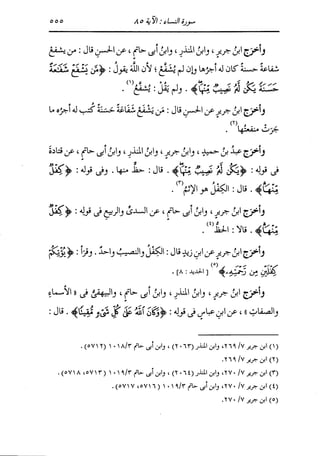 سورة النساء : الآية ٨٥ ٥٥٥
وأخرج ابنُ جريرٍ ، وابنُ المنذرِ ، وابنُ أبى حاتمٍ ، عن الحسنِ قال : مَن يشفعْ
شفاعةً حسنةً كان له أجرُها وإن لم يُشَفَّعْ ؛ لأن اللهَ يقولُ : ﴿ مَّن يَشْفَعْ شَفَٰعَةً
حَسَنَةً يَكُن لَّهُۥ نَصِيبٌ مِّنْهَا ﴾ . ولم يقُلْ : يُشَفَّعْ(١) .
وأخرج ابنُ جريرٍ عن الحسنِ قال : مَن يشفَعْ شفاعةً حسنةً كُتِب له أجرُه ما
جرَت منفعتُها(٢) .
وأخرج عبدُ بنُ حميدٍ ، وابنُ جريرٍ ، وابنُ المنذرِ ، وابنُ أبى حاتمٍ ، عن قتادةَ
فى قولِه : ﴿ يَكُن لَّهُۥ نَصِيبٌ مِّنْهَا ﴾ . قال : حظٌّ منها . وفى قولِه : ﴿ كِفْلٌ
مِّنْهَا ﴾ . قال : الكِفْلُ هو الإثمُ(٣) .
وأخرج ابنُ جريرٍ ، وابنُ أبى حاتمٍ ، عن السدىِّ والربيعِ فى قولِه : ﴿ كِفْلٌ
مِّنْهَا ﴾ . قالا : الحظُّ(٤) .
وأخرج ابنُ جريرٍ عن ابنِ زيدٍ قال : الكِفْلُ والنصيبُ واحدٌ . وقرَأ : ﴿ يُؤْتِكُمْ
كِفْلَيْنِ مِن رَّحْمَتِهِۦ ﴾(٥) [ الحديد : ٨ ] .
وأخرج ابنُ جريرٍ ، وابنُ المنذرِ ، وابنُ أبى حاتمٍ ، والبيهقىُّ فى « الأسماءِ
والصفاتِ » ، عن ابنِ عباسٍ فى قولِه : ﴿ وَكَانَ ٱللَّهُ عَلَىٰ كُلِّ شَىْءٍ مُّقِيتًا ﴾ . قال :
(١) ابن جرير ٧/ ٢٦٩، وابن المنذر (٢٠٦٣) ، وابن أبى حاتم ١٠١٨/٣ (٥٧١٢) .
(٢) ابن جرير ٧/ ٢٦٩.
(٣) ابن جرير ٧/ ٢٧٠، وابن المنذر (٢٠٦٤) ، وابن أبى حاتم ١٠١٩/٣ (٥٧١٣، ٥٧١٨) .
(٤) ابن جرير ٧/ ٢٧٠، وابن أبى حاتم ١٠١٩/٣ (٥٧١٦، ٥٧١٧) .
(٥) ابن جرير ٧/ ٢٧٠.